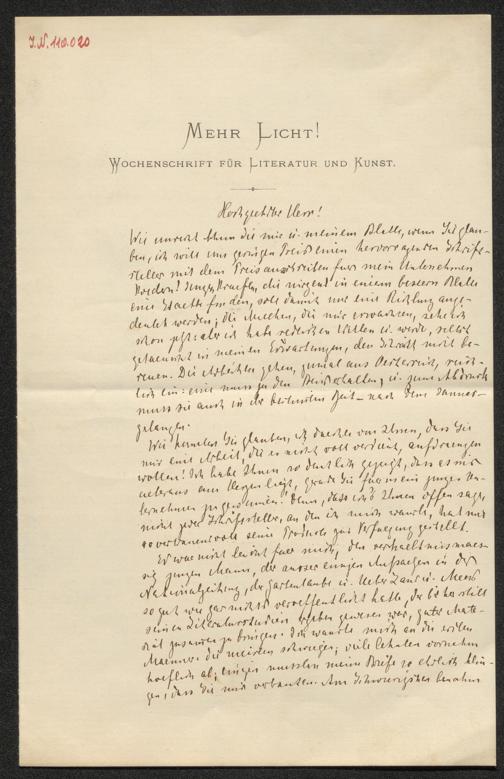 J.N. 110.020
MEHR LICHT!
WOCHENSCHRIFT FÜR LITERATUR UND KUNST.
Hochgeehrter Herr!
Wie unrecht thun Sie mir u. meinem Blatte, wenn Sie glau-
ben, ich will um geringen Preis einen hervorragenden Schrift-
steller mit dem Preisausschreiben fuer mein Unternehmen
koedern! Jungen Kraeften, die nirgend in einem bessern Blatte
eine Staette finden, soll damit nur eine Richtung ange-
deutet werden; die Muehen, die mir erwachsen, sehe ich
schon jetzt: aber ich habe redlichen Willen u. werde, selbst
getaeuscht in meinen Erwartungen, den Schritt nicht be-
reuen. Die Arbeiten gehen, zumal aus Oesterreich, reich-
lich ein: eine muss ja den Preis erhalten, u. zum Abdruck
muss sie auch in der kuerzesten Zeit – nach dem
gelangen.
Wie konnten Sie glauben, ich daechte von Ihnen, dass Sie
mir eine Arbeit, die es nicht voll verdient, aufdraengen
wollen! Ich habe Ihnen so deutlich gezeigt, dass es mir
am Herzen liegt, grade Sie fuer mein junges Un-
ternehmen zu gewinnen. Denn, dass ich's Ihnen offen sage,
nicht jeder Schriftsteller, an den ich mich wandte, hat mir
so vertrauensvoll seine Producte zur Verfuegung gestellt.
Es war nicht leicht fuer mich, den verhaeltnissmaes-
sig jungen Mann, der ausser einigen Aufsaetzen in der
Nationalzeitung, der Gartenlaube u. Ueber Land u. Meer
so gut wie gar nichts veroeffentlicht hatte, der bisher still
seinen Literaturstudien ergeben gewesen war, gutes Mate-
rial zusammen zu bringen. Ich wandte mich an die ersten
Maenner: die meisten schwiegen; viele lehnten vornehm
hoeflich ab; einigen mussten meine Briefe so ehrlich klin-
gen, dass Sie mir vertrauten. Am Schwierigsten benahm